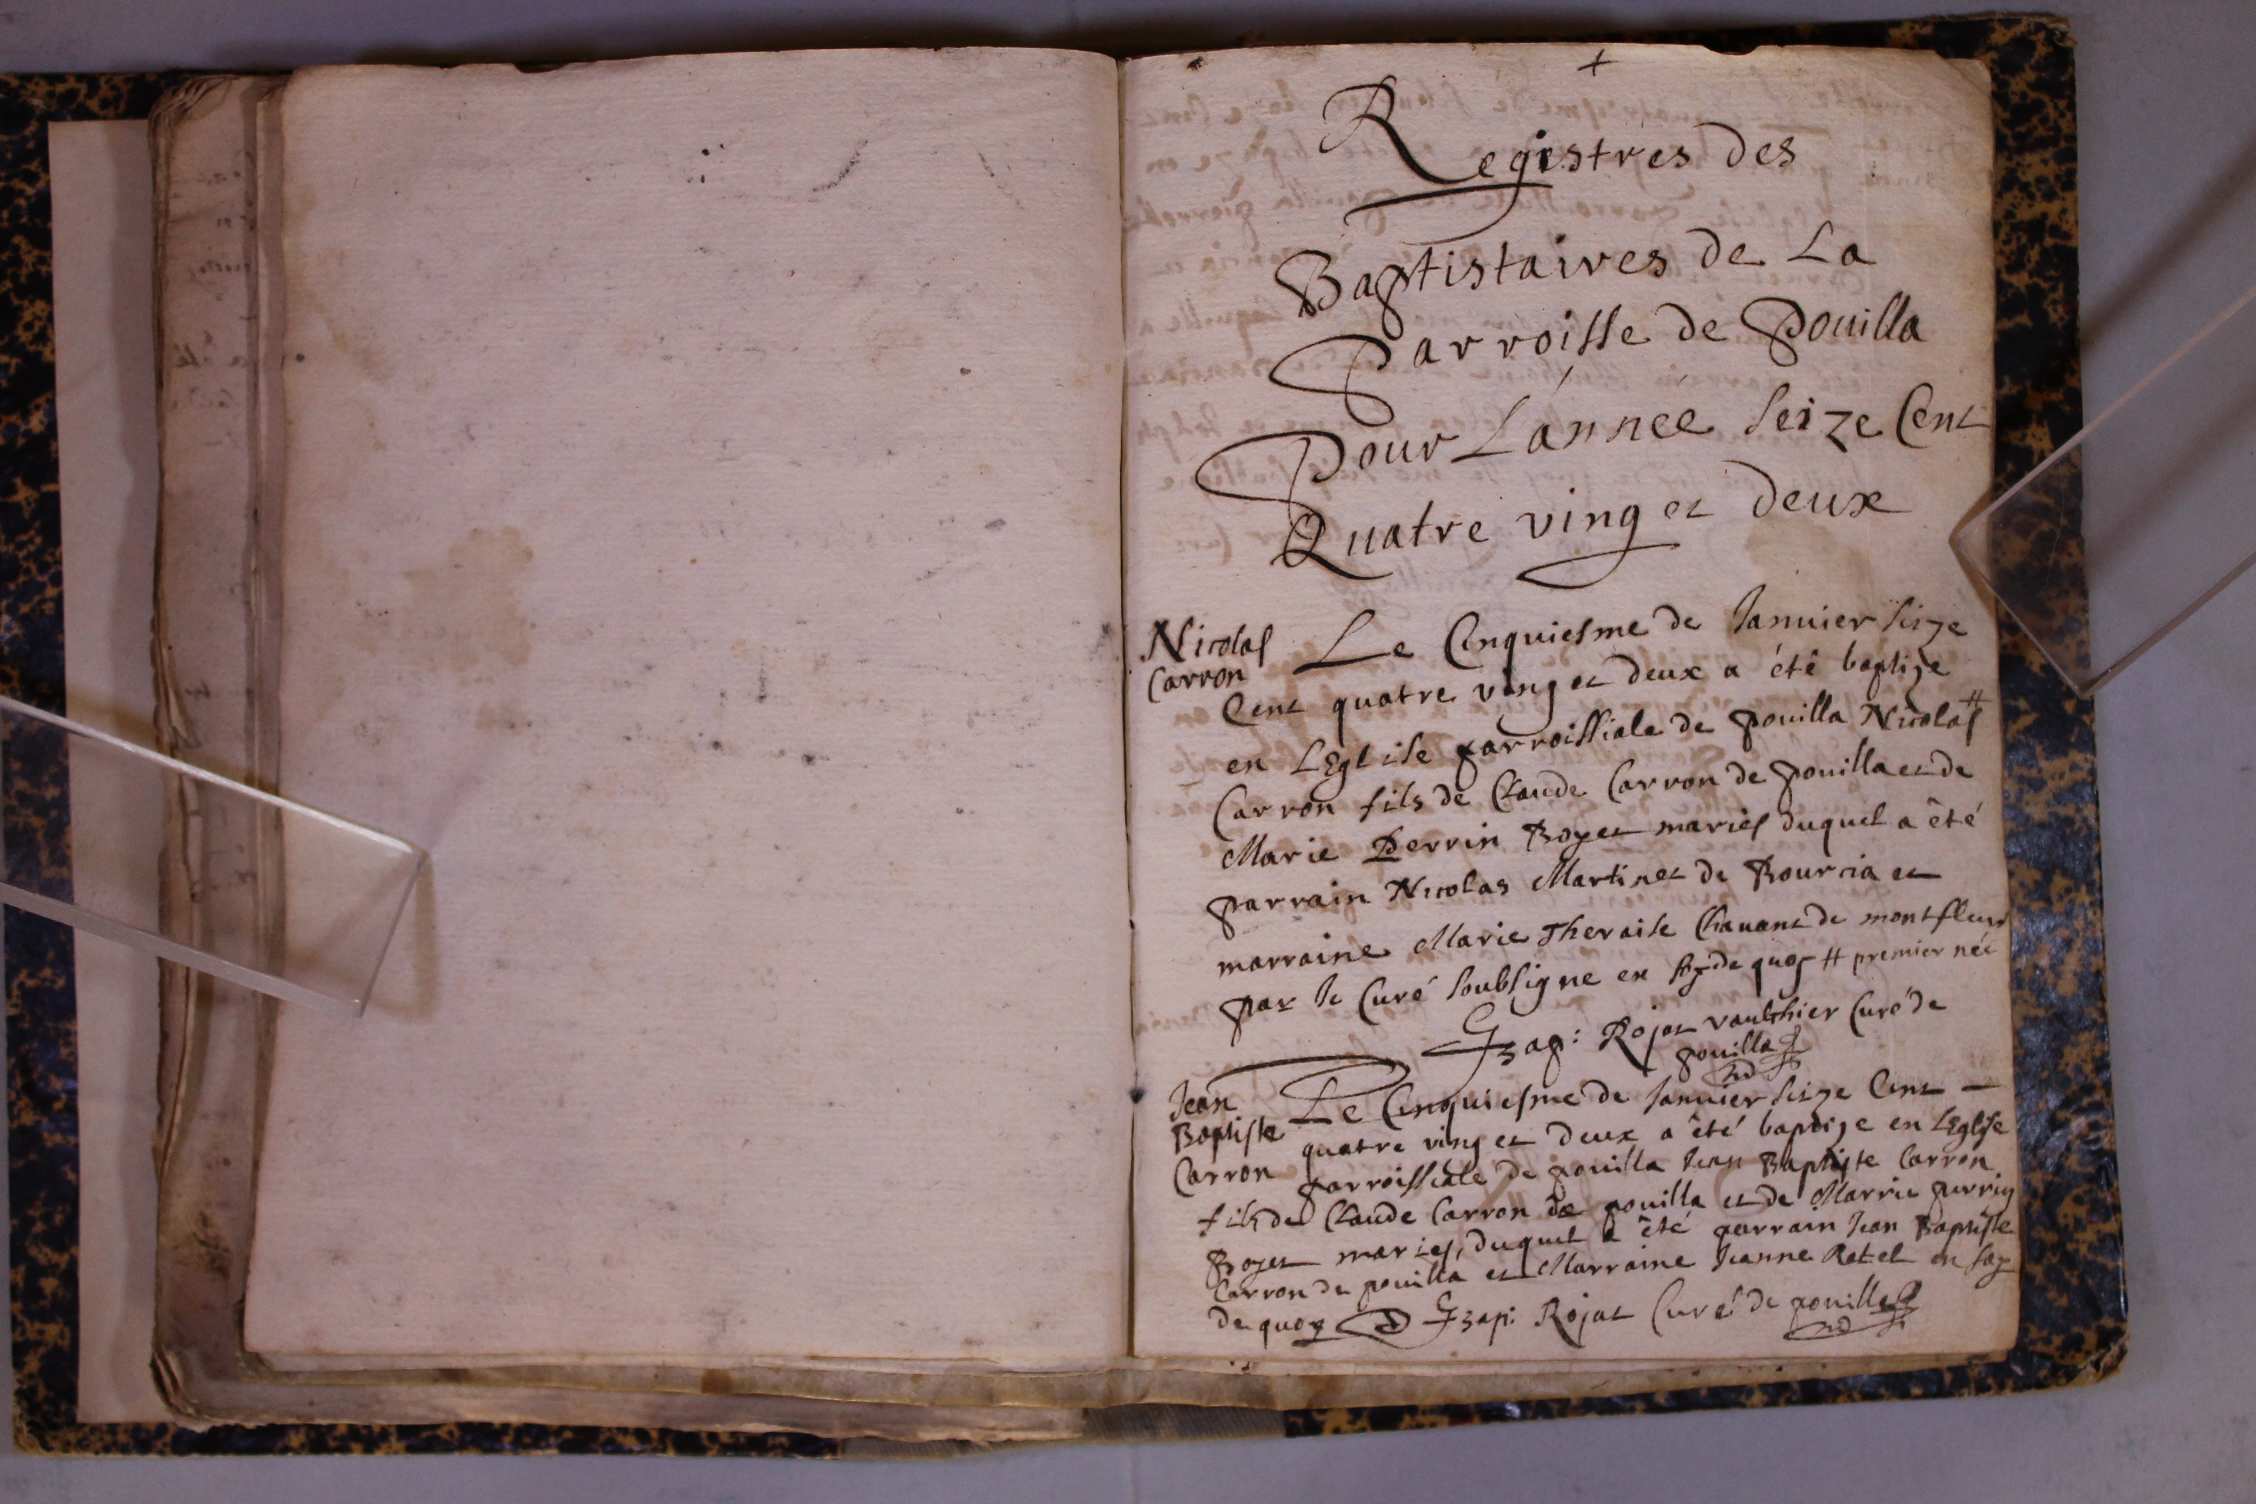 +
Registres des
Baptistaires de La
Parroisse de Pouilla
Pour L'année seize Cent
Quatre ving et deux
Nicolas
Carron
Le Cinquiesme de Janvier seize
Cent quatre ving et deux a été baptize
en L'Eglise parroissiale de pouilla Nicolas #
Carron fils de Claude Carron de pouilla et de
Marie Perrin Boyet mariés duquel a été
parrain Nicolas Martinet de Bourcia et
marraine Marie Theraise Chavant de montfleur
par le Curé soubsigne en foy de quoy # premier néé
Rojat vaulthier Curé de
pouilla
Jean
Baptiste
Carron
Le Cinquiesme de Janvier seize Cent —
quatre ving et deux a été baptize en L'Eglise
parroissiale de pouilla Jean Baptiste Carron
fils de Claude Carron de pouilla et de Marrie perrin
Boyet mariés, duquel a été parrain Jean Baptiste
Carron de pouilla et Marraine Jeanne Ratel en foy
de quoy Rojat Curé de pouilla